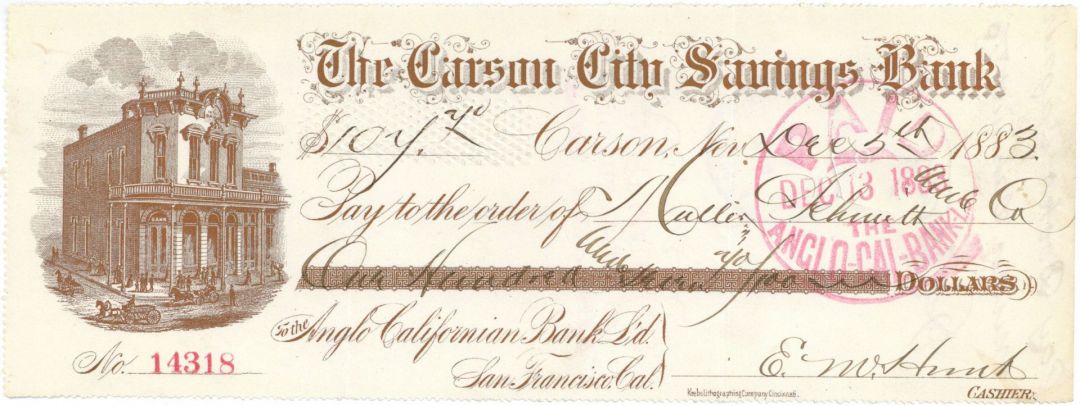 The Carson City Savings Bank
Carson, Nev. Dec 5th 1883.
Pay to the order of Muller Schmidt and Co
One Hundred and 70/100 Dollars
To the Anglo Californian Bank L'd.
San Francisco, Cal.
E. M. Hunt
CASHIER.
No. 14318
Krebs Lithographing Company Cincinnati.
PAID
DEC 13
THE
ANGLO-CAL-BANK-L
BANK